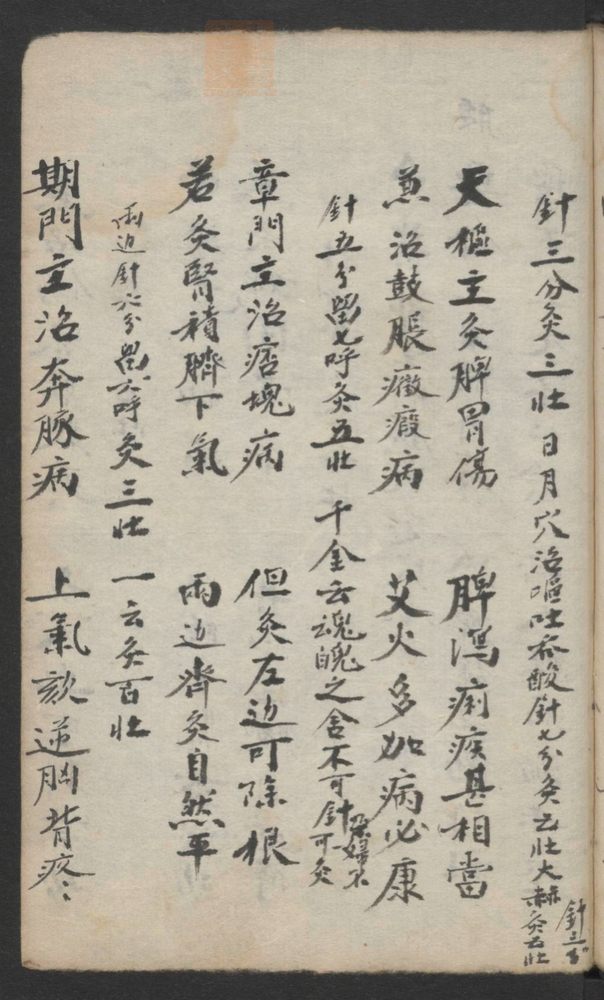 針三分灸三壯 日月穴治嘔吐吞酸針七分灸五壯大赫灸五壯
針三分
天樞主灸脾胃傷 脾瀉痢疾甚相當
兼治鼓脹癥瘕病 艾火多加病必康
針五分留七呼灸五壯 千金云魂魄之舍不可針
孕婦不可灸
章門主治痞塊病 但灸左边可除根
若灸腎積臍下氣 兩边齊灸自然平
兩边針六分留六呼灸三壯 一云灸百壯
期門主治奔豚病 上氣欬逆胸背疼